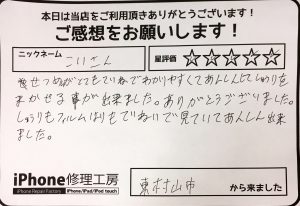 本日は当店をご利用頂きありがとうございます！
ご感想をお願いします！
ニックネーム こいさん 星評価 ☆☆☆☆☆
せつめいがとてもていねいでわかりやすくてあんしんしてしゅうりを
まかせる事が出来ました。ありがとうございました。
しゅうりもフィルムはりもていねいで見ていてあんしん出来
ました。
iPhone修理工房
iPhone Repair Factory iPhone/iPad/iPod touch
東村山市 から来ました